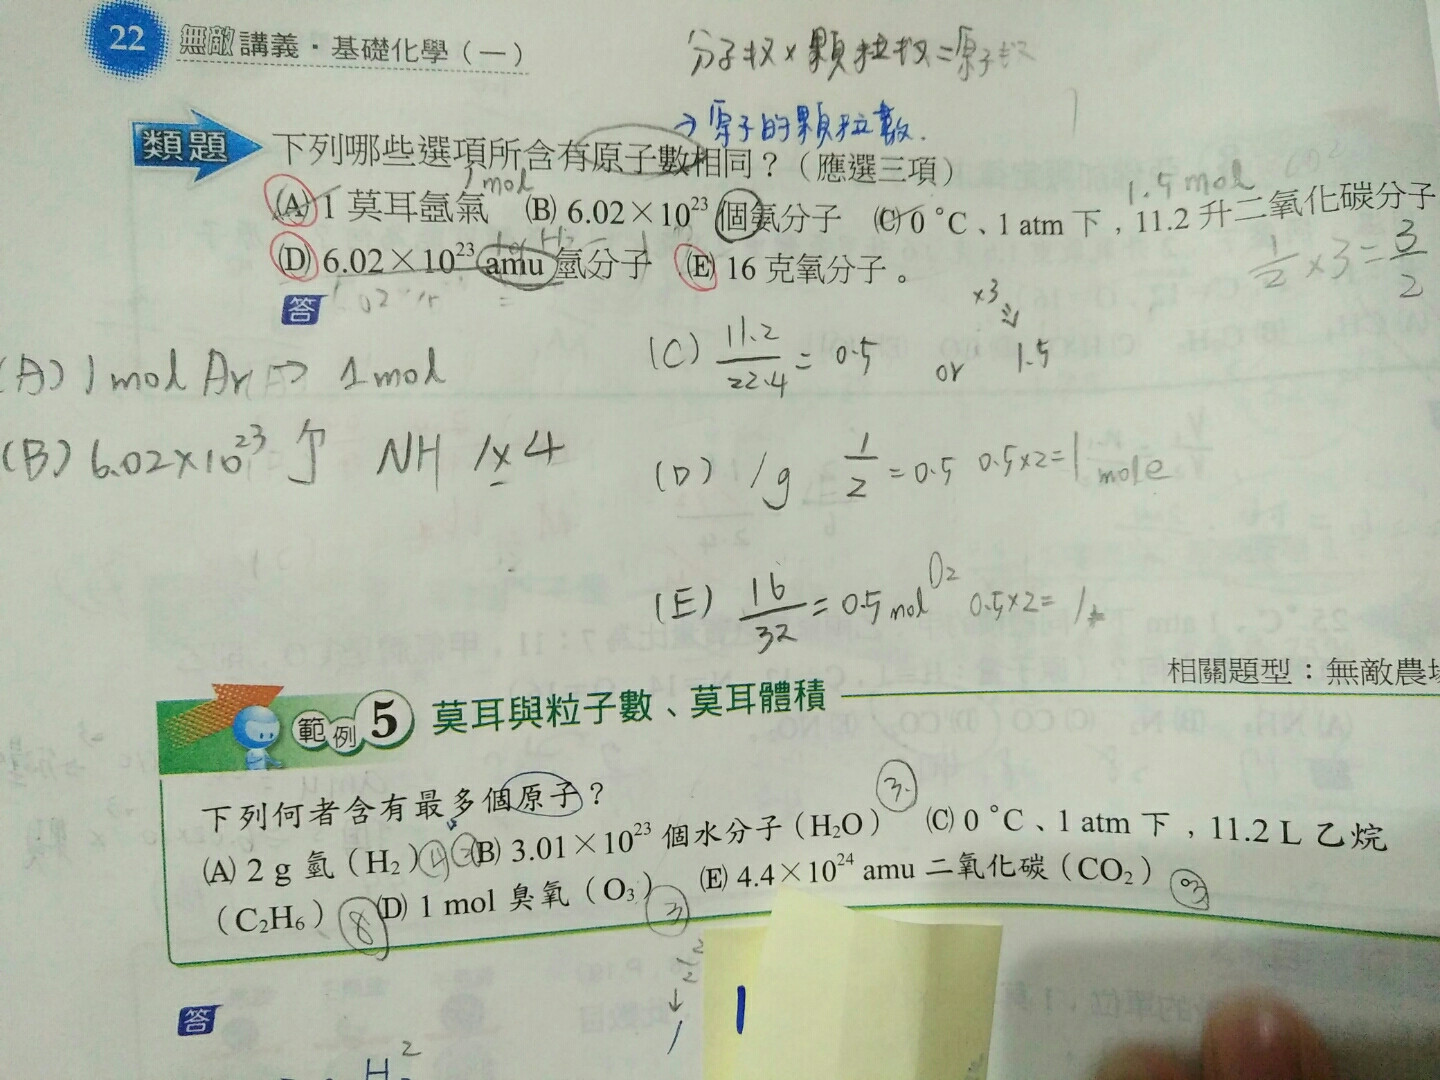 22 無敵講義・基礎化學（一）
分子数×顆粒数=原子数
→原子的顆粒數.
類題 下列哪些選項所含有原子數相同？（應選三項）
1mol
1.5 mol
(A) 1 莫耳氬氣 (B) 6.02×10²³ 個氨分子 (C) 0 °C、1 atm 下，11.2 升二氧化碳分子
(D) 6.02×10²³ amu 氫分子 (E) 16 克氧分子。
1/2 ×3= 3/2
答
×3
(A) 1 mol Ar → 1mol
(C) 11.2/22.4 = 0.5 or 1.5
(B) 6.02×10²³ 个 NH 1×4
(D) 1g 1/2 = 0.5 0.5×2=1 mole
(E) 16/32 = 0.5 mol O2 0.5×2= 1
相關題型：無敵農場
範例 5 莫耳與粒子數、莫耳體積
下列何者含有最多個原子？
(A) 2 g 氫（H₂） (B) 3.01×10²³ 個水分子（H₂O） (C) 0 °C、1 atm 下，11.2 L 乙烷
（C₂H₆） (D) 1 mol 臭氧（O₃） (E) 4.4×10²⁴ amu 二氧化碳（CO₂）
3
8
3
↓
1
1
答
H2